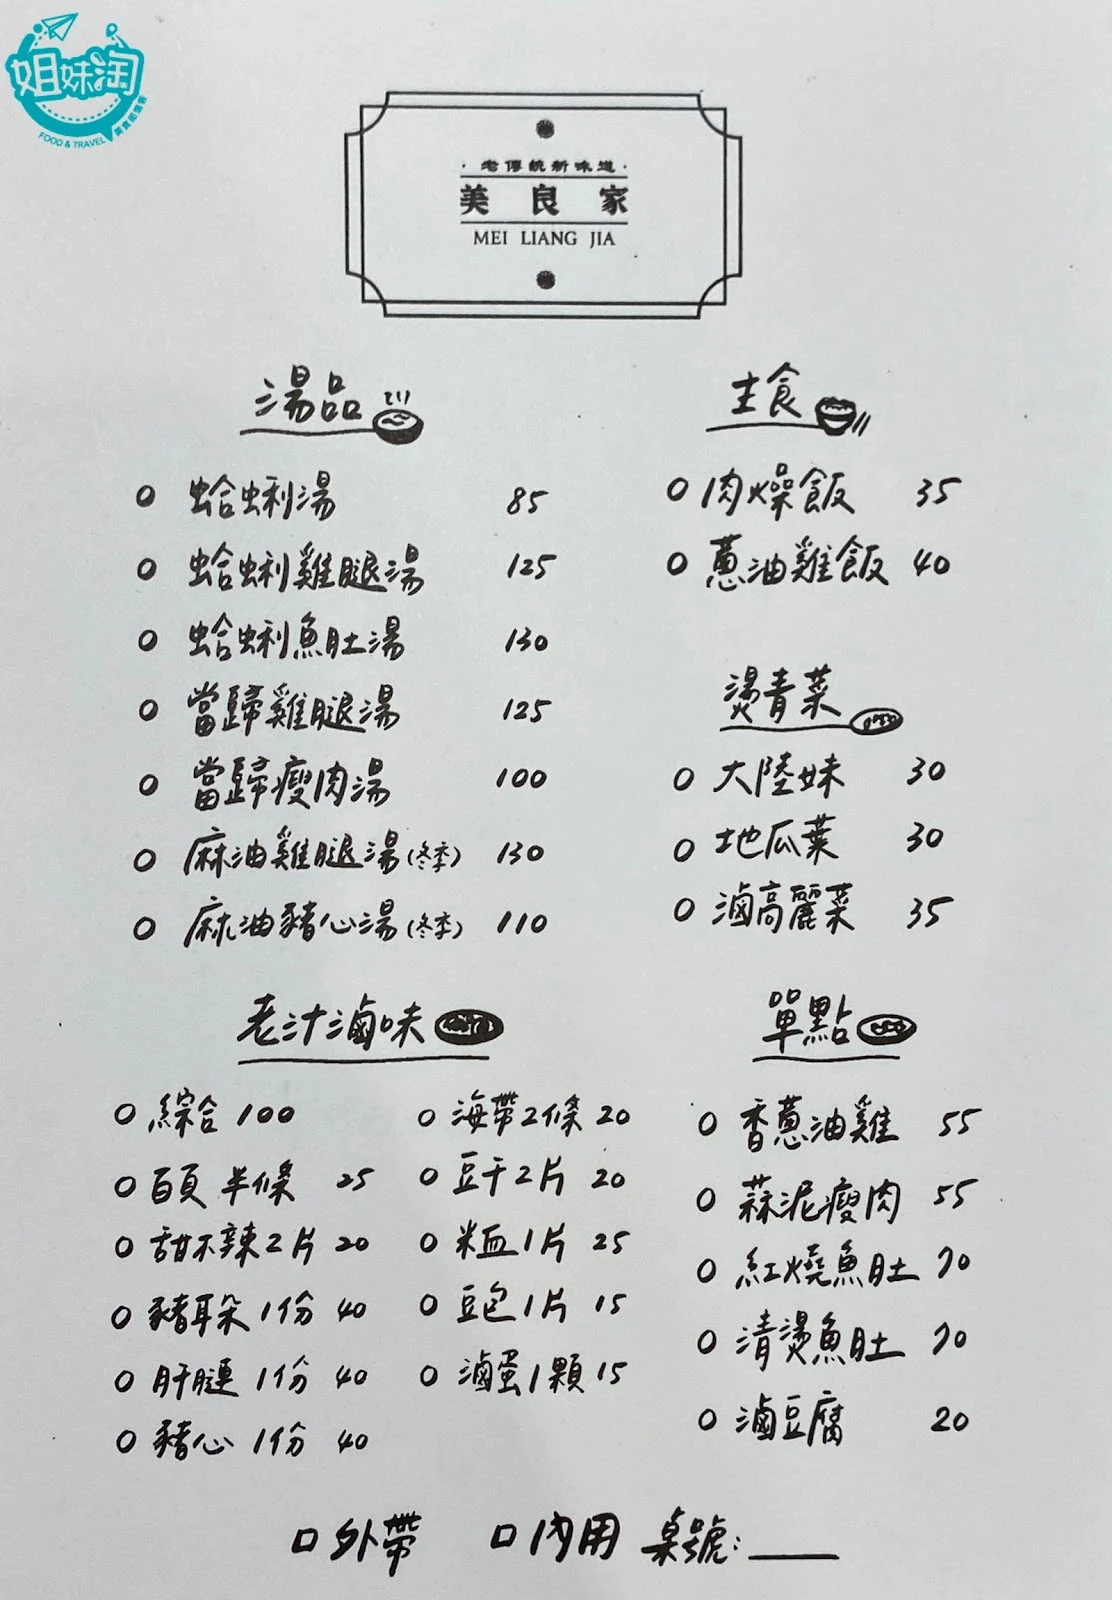 姐妹淘
FOOD & TRAVEL 美食部落客
·老傳統新味道·
美良家
MEI LIANG JIA
湯品
蛤蜊湯 85
蛤蜊雞腿湯 125
蛤蜊魚肚湯 130
當歸雞腿湯 125
當歸瘦肉湯 100
麻油雞腿湯(冬季) 130
麻油豬心湯(冬季) 110
主食
肉燥飯 35
蔥油雞飯 40
燙青菜
大陸妹 30
地瓜葉 30
滷高麗菜 35
老汁滷味
綜合 100
百頁 半條 25
甜不辣2片 20
豬耳朵 1份 40
肝腱 1份 40
豬心 1份 40
海帶2條 20
豆干2片 20
米血1片 25
豆包1片 15
滷蛋1顆 15
單點
香蔥油雞 55
蒜泥瘦肉 55
紅燒魚肚 70
清燙魚肚 70
滷豆腐 20
外帶 內用 桌號: